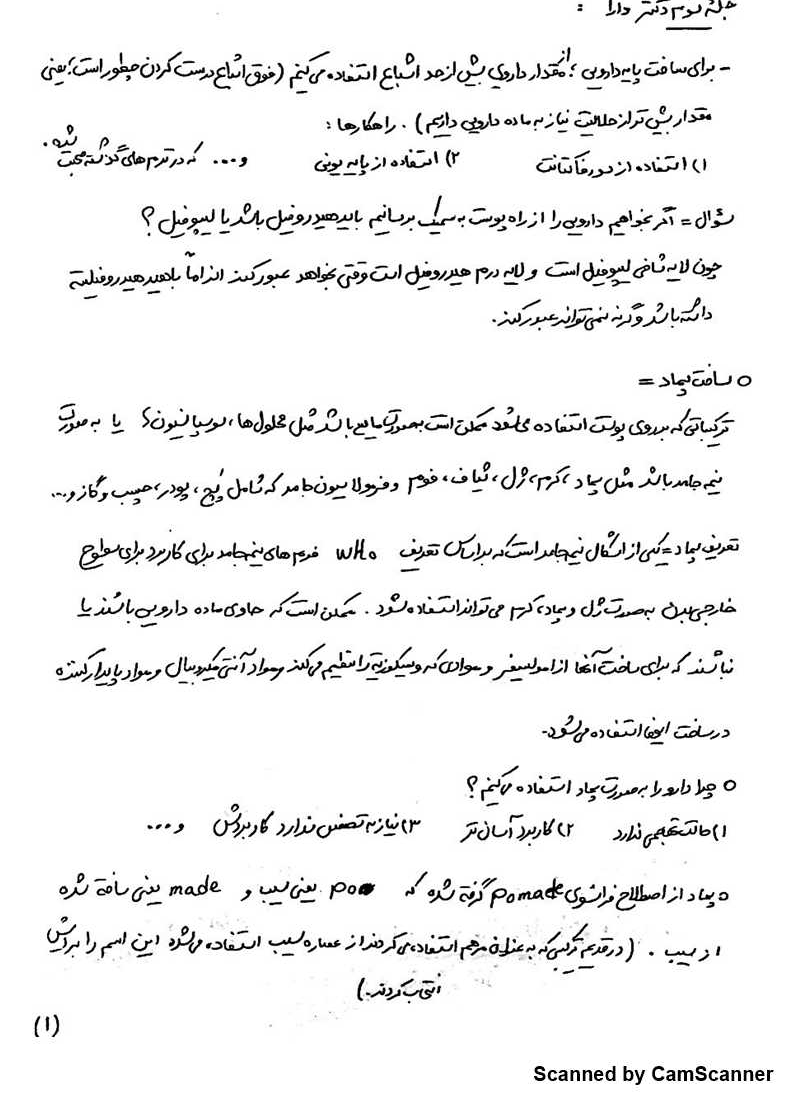 جلسه سوم دکتر دارا :
- برای ساخت پایه دارویی ؛ از مقدار داروی بیش از حد اشباع استفاده می کنیم (فوق اشباع درست کردن چطور است؛ یعنی
مقدار بیش تر از حلالیت نیاز به ماده دارویی داریم) . راهکارها :
۱) استفاده از سورفاکتانت ۲) استفاده از پایه یونی و... که در ترم های گذشته صحبت شده.
سؤال = اگر بخواهیم دارویی را از راه پوست به سیستمیک برسانیم باید هیدروفیل باشد یا لیپوفیل ؟
چون لایه شاخی لیپوفیل است و لایه درم هیدروفیل است وقتی بخواهد عبور کند الزاماً باید هیدروفیلیته
داشته باشد وگرنه نمی تواند عبور کند.
○ ساخت پماد =
ترکیباتی که بر روی پوست استفاده می شود ممکن است بصورت مایع باشد مثل محلول ها، سوسپانسیون ها یا به صورت
نیمه جامد باشد مثل پماد ، کرم، ژل ، شیاف ، فوم و فرمولاسیون جامد که شامل پَچ ، پودر، چسب و گاز و...
تعریف پماد = یکی از اشکال نیمه جامد است که بر اساس تعریف WHO فرم های نیمه جامد برای کاربرد برای سطوح
خارجی بدن به صورت ژل و پماد، کرم می تواند استفاده شود . ممکن است که حاوی ماده دارویی باشند یا
نباشند که برای ساخت آنها از امولسیفر و موادی که ویسکوزیته را تنظیم می کند و مواد آنتی میکروبیال و مواد پایدار کننده
در ساخت اینها استفاده می شود.
○ چرا دارو را به صورت پماد استفاده می کنیم ؟
۱) حالت تهاجمی ندارد ۲) کاربرد آسان تر ۳) نیاز به تخصص ندارد کاربردش و...
○ پماد از اصطلاح فرانسوی Pomade گرفته شده که po یعنی سیب و made یعنی ساخته شده
از سیب . (در قدیم ترکیبی که به عنوان مرهم استفاده می کردند از عصاره سیب استفاده می شده این اسم را برایش
انتخاب کردند.)
(۱)
Scanned by CamScanner